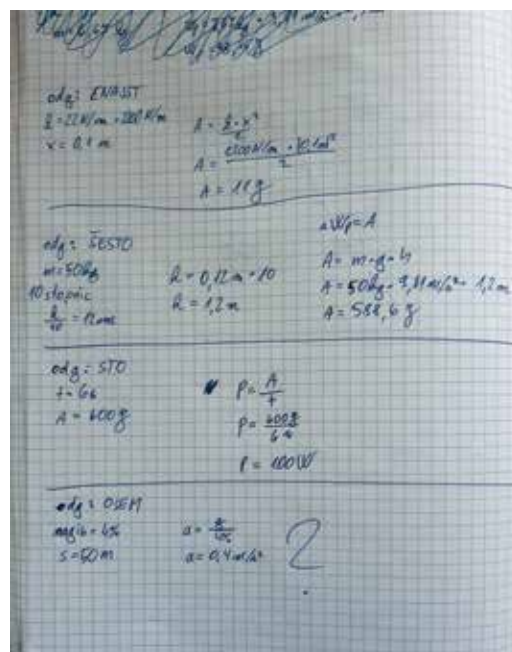 odg: ENAJST
k = 22 N/cm = 2200 N/m
x = 0,1 m
A = k · x² / 2
A = 2200 N/m · (0,1 m)² / 2
A = 11 J
odg: ŠESTO
m = 50 kg
10 stopnic
h/10 = 12 cm
h = 0,12 m · 10
h = 1,2 m
ΔWp = A
A = m · g · h
A = 50 kg · 9,81 m/s² · 1,2 m
A = 588,6 J
odg: STO
t = 6s
A = 600 J
P = A / t
P = 600 J / 6 s
P = 100 W
odg: OSEM
nagib = 4%
s = 50 m
a = 0,4 m/s²
?